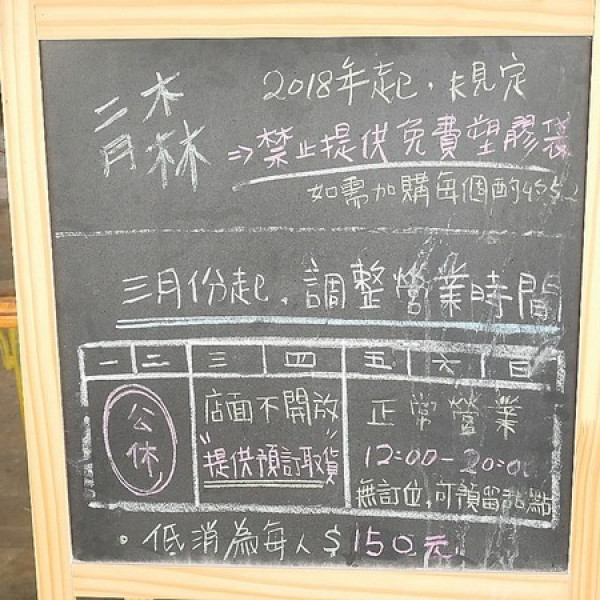 二木
月森
2018年起,規定
⇒禁止提供免費塑膠袋
如需加購每個酌
三月份起,調整營業時間
一 二 三 四 五 六 日
公休
店面不開放
"提供預訂取貨"
正常營業
12:00-20:00
無訂位,可預留甜點
• 低消為每人$150元